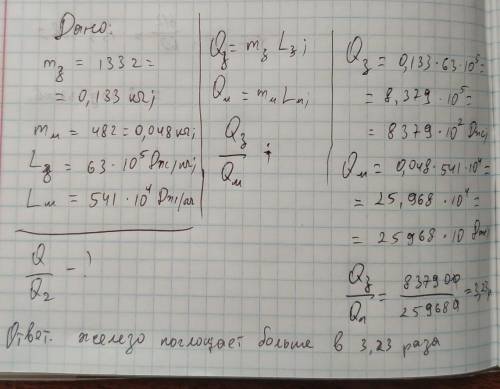 Дано:
m_ж = 133г =
= 0,133 кг;
m_м = 48г = 0,048 кг;
L_ж = 63 · 10⁵ Дж/кг;
L_м = 541 · 10⁴ Дж/кг
Q/Q₂ - ?
Q_ж = m_ж L_ж;
Q_м = m_м L_м;
Q_ж/Q_м ;
Q_ж = 0,133 · 63 · 10⁵ =
= 8,379 · 10⁵ =
= 8379 · 10² Дж;
Q_м = 0,048 · 541 · 10⁴ =
= 25,968 · 10⁴ =
= 25968 · 10 Дж
Q_ж/Q_л = 837900/259680 = 3,23
Ответ. железо поглощает больше в 3,23 раза